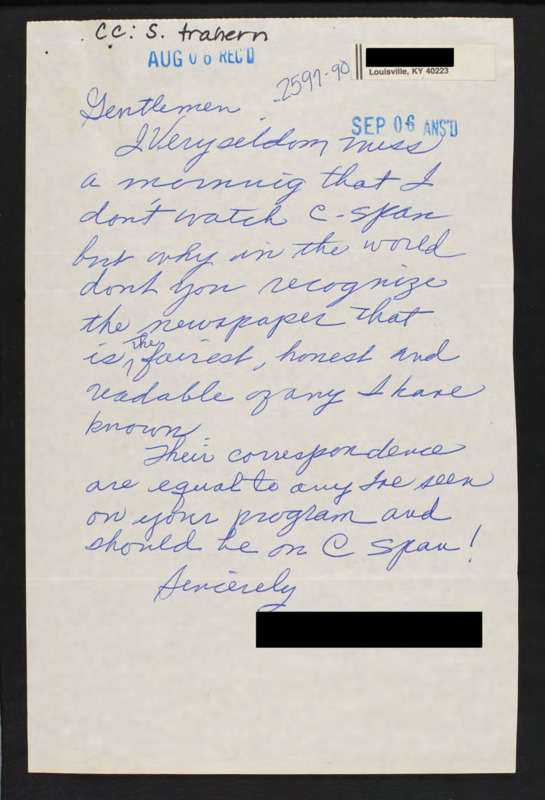 CC: S. trahern
AUG 06 REC'D
Louisville, KY 40223
2597-90
Gentlemen
SEP 06 ANS'D
I Very seldom miss
a morning that I
don't watch C-Span
but why in the world
dont you recognize
the newspaper that
is the fairest, honest and
readable of any I have
known.
Their correspondence
are equal to any I've seen
on your program and
should be on C Span!
Sincerely